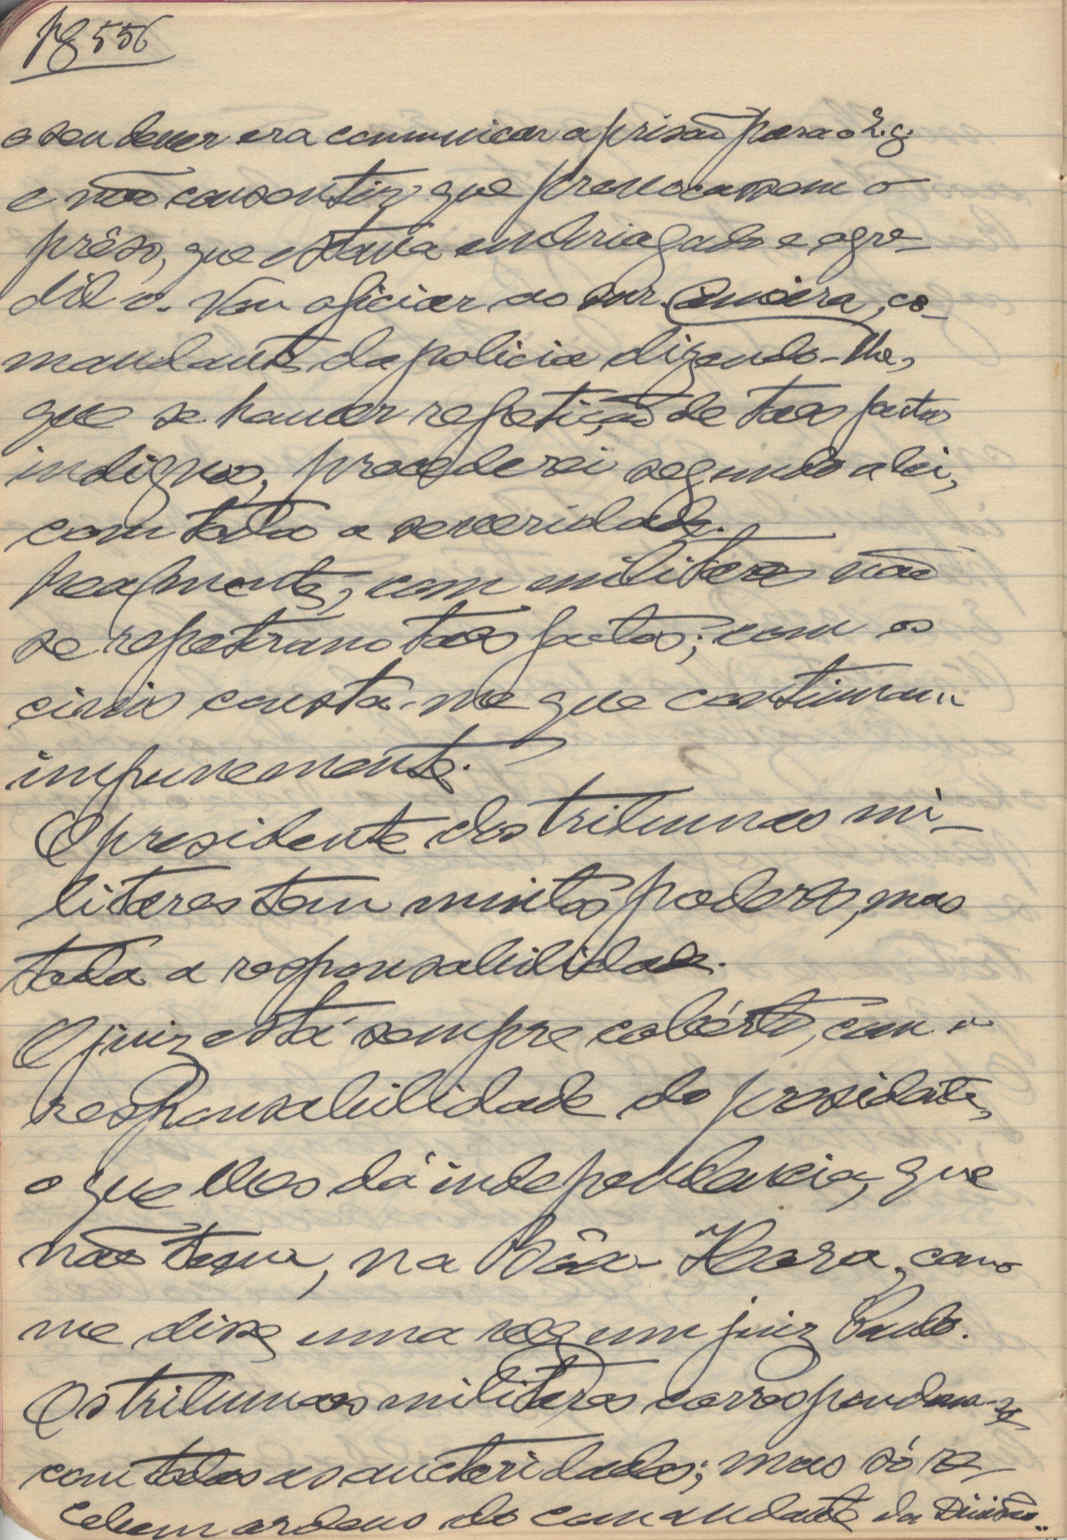 pg 556
o seu dever era comunicar a prisão para o Q. G.
e não consentir que provocassem o
prêso, que estava embriagado e agre-
dil o. Vou oficiar ao snr. co-
mandante da policia dizendo-lhe,
que se houver repetição de taes factos
indignos, procederei segundo a lei,
com toda a severidade.
Realmente, com militares não
se repetiram taes factos; com os
civis consta-me que continuou..
impunemente.
O presidente dos tribunaes mi-
litares tem muitos poderes, mas
toda a responsabilidade.
O juiz está sempre cobérto, com a
responsabilidade do presidente,
o que lhes dá independencia, que
não teem, na Bôa-Hora, como
me disse uma vez um juiz Paulo.
Os tribunaes militares correspondem-se
com todas as auctoridades; mas só re-
cebem ordens do comandante da Divisão..